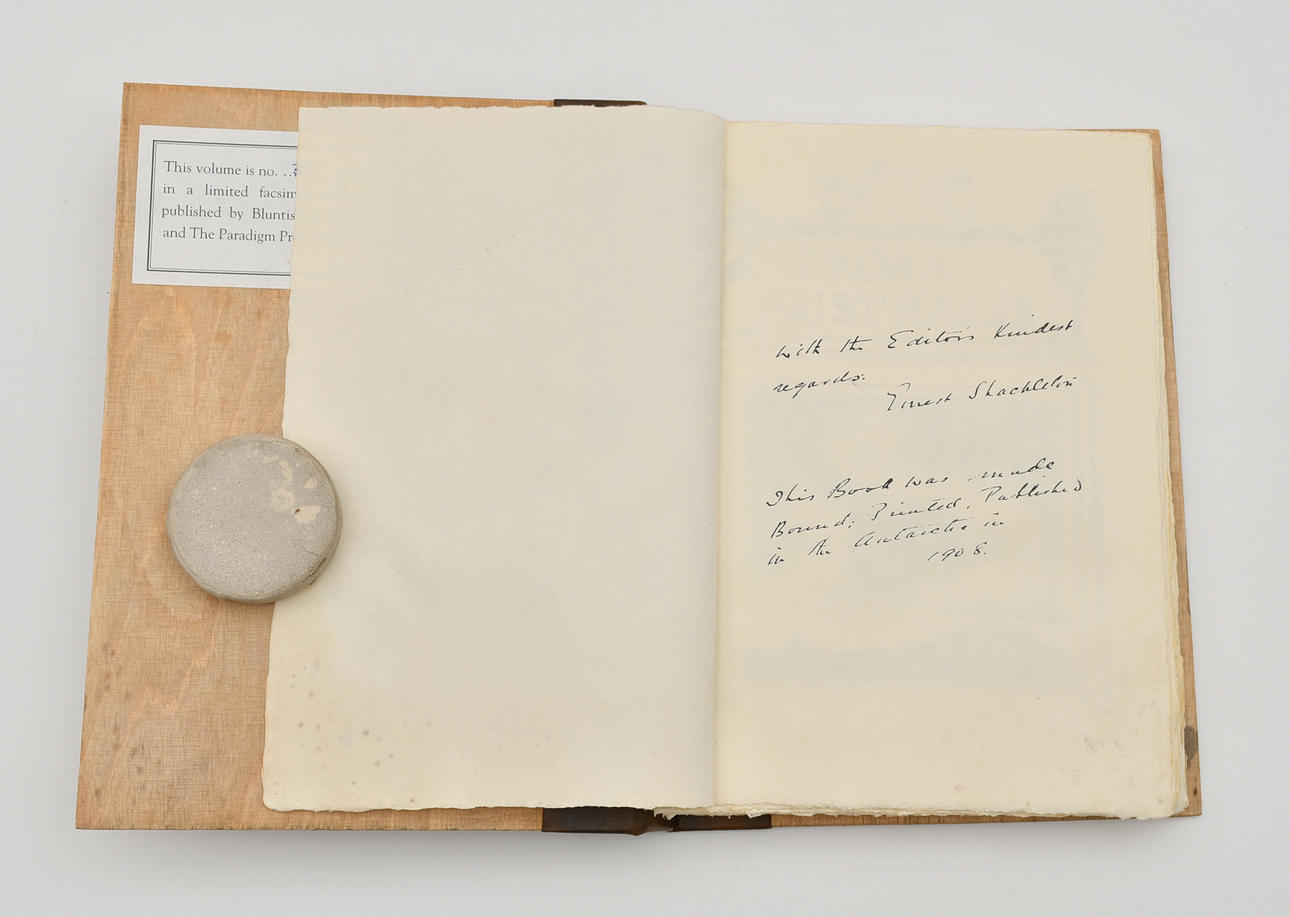 This volume is no.
in a limited facsim
published by Bluntis
and The Paradigm Pr
with the Editors Kindest
regards.
Ernest Shackleton
This Book was made
Bound; Printed, Published
in the Antarctic in
1908.